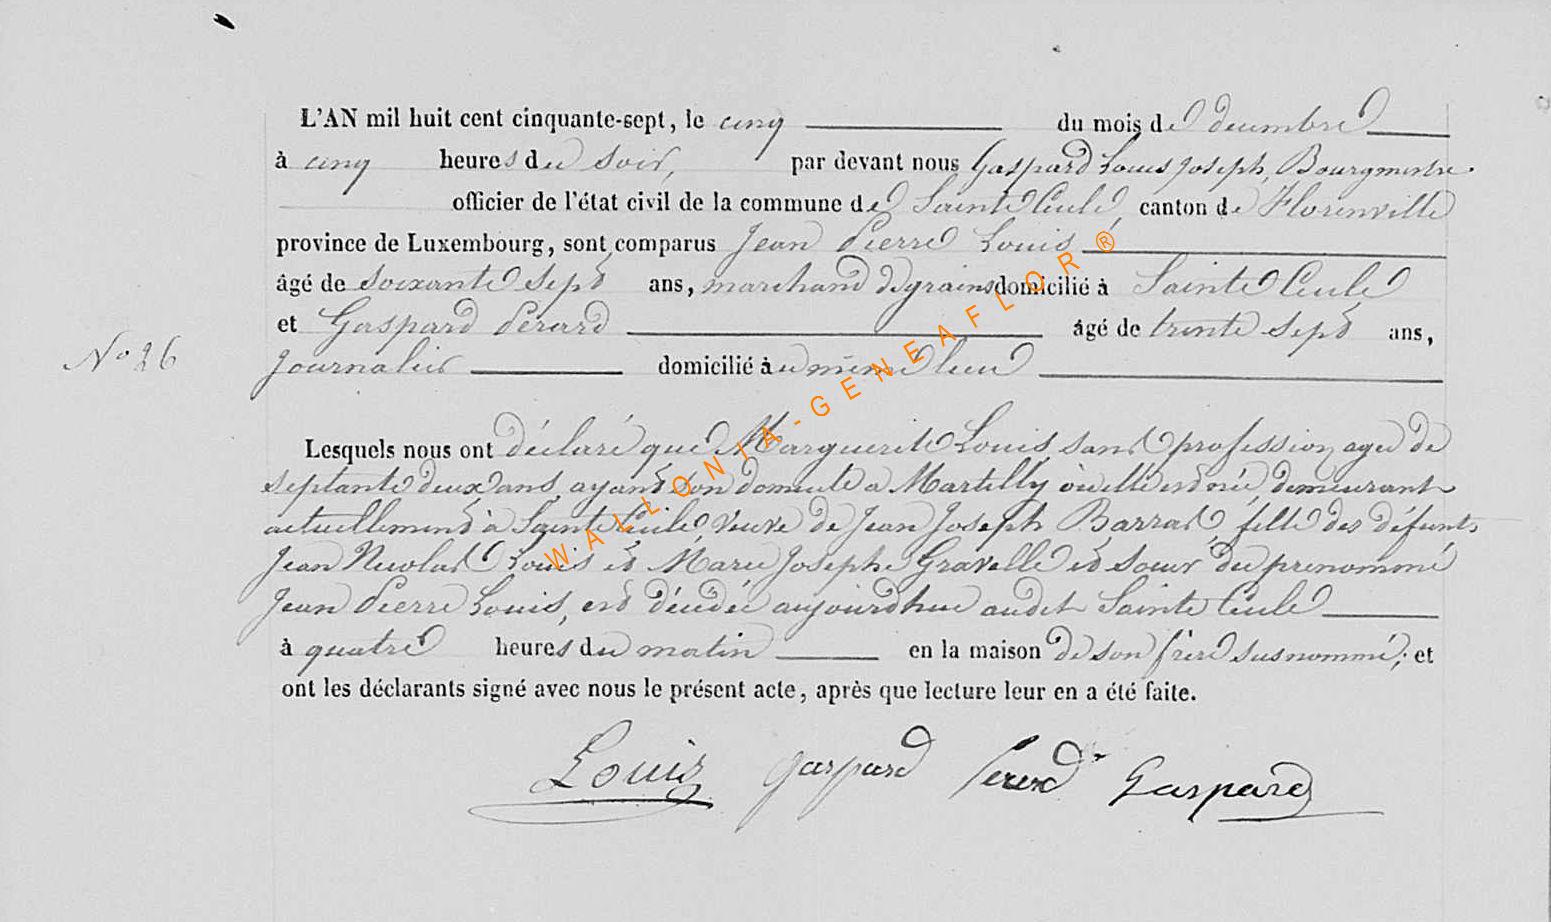 L'AN mil huit cent cinquante-sept, le cinq du mois de decembre
à cinq heures du soir, par devant nous Gaspard Louis Joseph, Bourgmestre
officier de l'état civil de la commune de Sainte Cecile, canton de Florenville
province de Luxembourg, sont comparus Jean Pierre Louis
âgé de soixante sept ans, marchand de grains domicilié à Sainte Cecile
et Gaspard Perard âgé de trente sept ans,
No 26
journalier domicilié au même lieu
Lesquels nous ont déclaré que Marguerite Louis sans profession agee de
septante deux ans, ayant son domicile a Martilly où elle est née, demeurant
actuellement à Sainte Cecile, veuve de Jean Joseph Barras, fille des défunts
Jean Nicolas Louis et Marie Josephe Gravelle et soeur du prenommé
Jean Pierre Louis, est décédée aujourdhui audit Sainte Cecile
à quatre heures du matin en la maison de son frère susnommé; et
ont les déclarants signé avec nous le présent acte, après que lecture leur en a été faite.
Louis gaspard Gaspard
WALLONIA-GENEAFLOR®